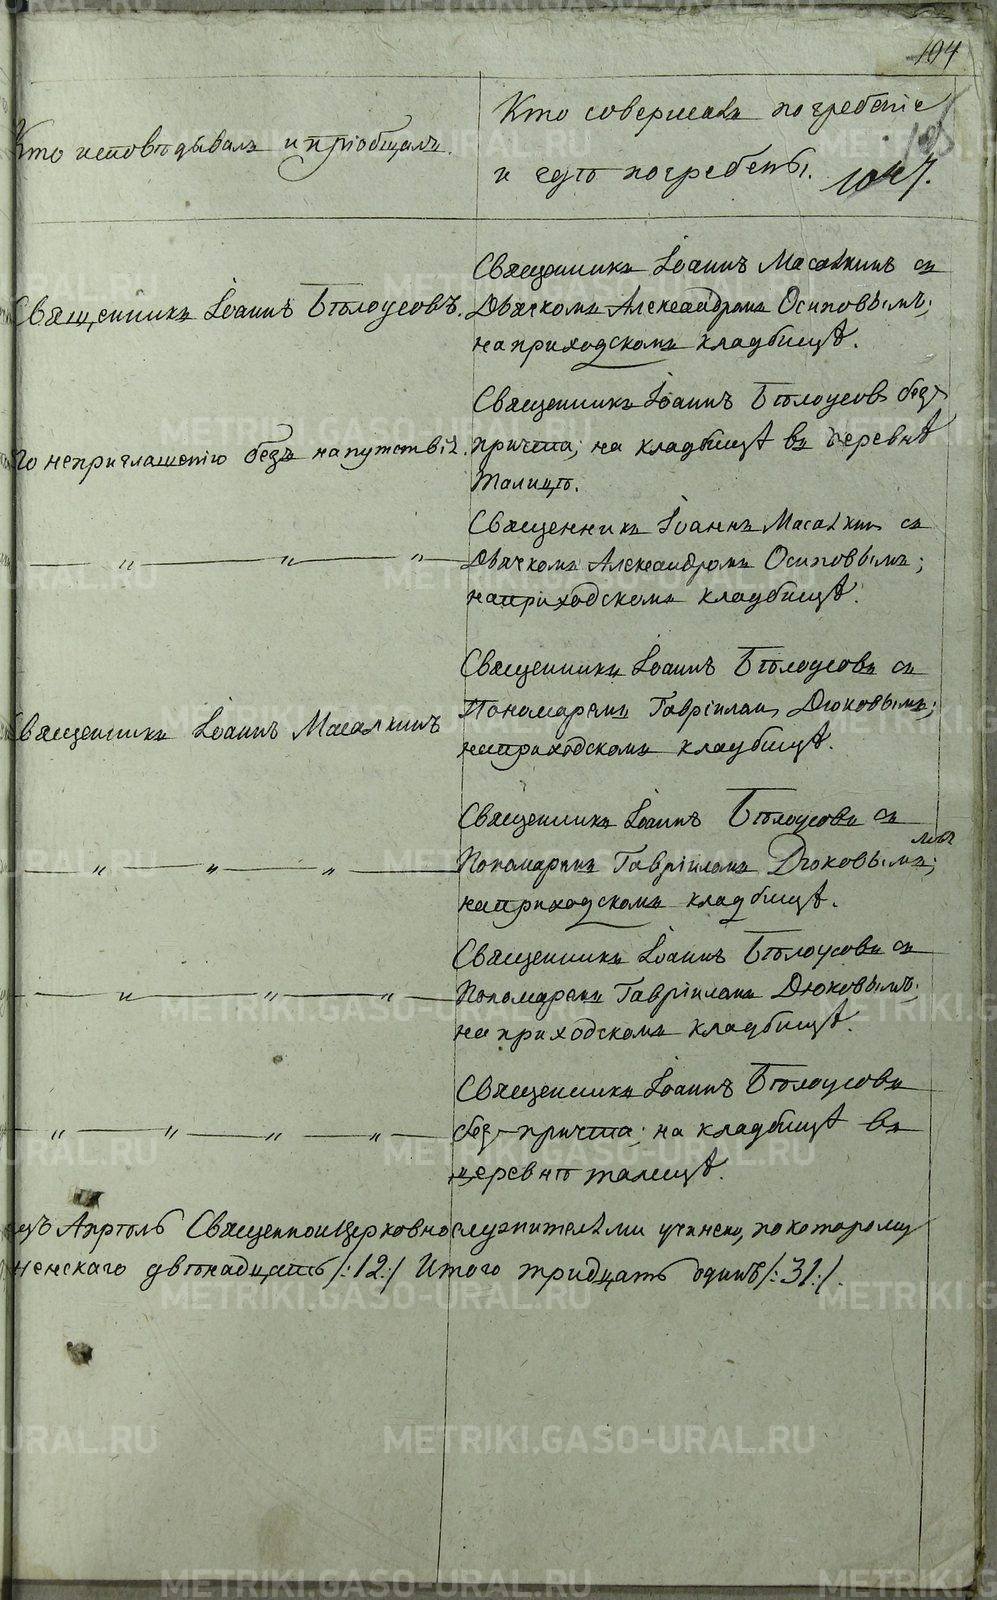 104
Кто исповѣдывалъ и пріобщалъ.
Кто совершалъ погребеніе
и гдѣ погребены.
Священникъ Іоаннъ Бѣлоусовъ.
Священникъ Іоаннъ Масалкинъ съ
Дьячкомъ Александромъ Осиповымъ;
на приходскомъ кладбищѣ.
По неприглашенію безъ напутствія.
Священникъ Іоаннъ Бѣлоусовъ без
причта; на кладбищѣ въ деревнѣ
Талицѣ.
— " — " — " —
Священникъ Іоаннъ Масалкинъ съ
Дьячкомъ Александромъ Осиповымъ;
на приходскомъ кладбищѣ.
Священникъ Іоаннъ Масалкинъ
Священникъ Іоаннъ Бѣлоусовъ съ
Пономаремъ Гавріиломъ Дюковымъ;
на приходскомъ кладбищѣ.
— " — " — " —
Священникъ Іоаннъ Бѣлоусовъ съ
Пономаремъ Гавріиломъ Дюковымъ;
на приходскомъ кладбищѣ.
— " — " — " —
Священникъ Іоаннъ Бѣлоусовъ съ
Пономаремъ Гавріиломъ Дюковымъ;
на приходскомъ кладбищѣ.
— " — " — " — " —
Священникъ Іоаннъ Бѣлоусовъ
без причта; на кладбищѣ въ
деревнѣ талицѣ.
Апрѣль Священноицерковнослужителями учинено, по которому
женскаго двѣнадцать /:12:/ Итого тридцать одинъ /:31:/.
METRIKI.GASO-URAL.RU